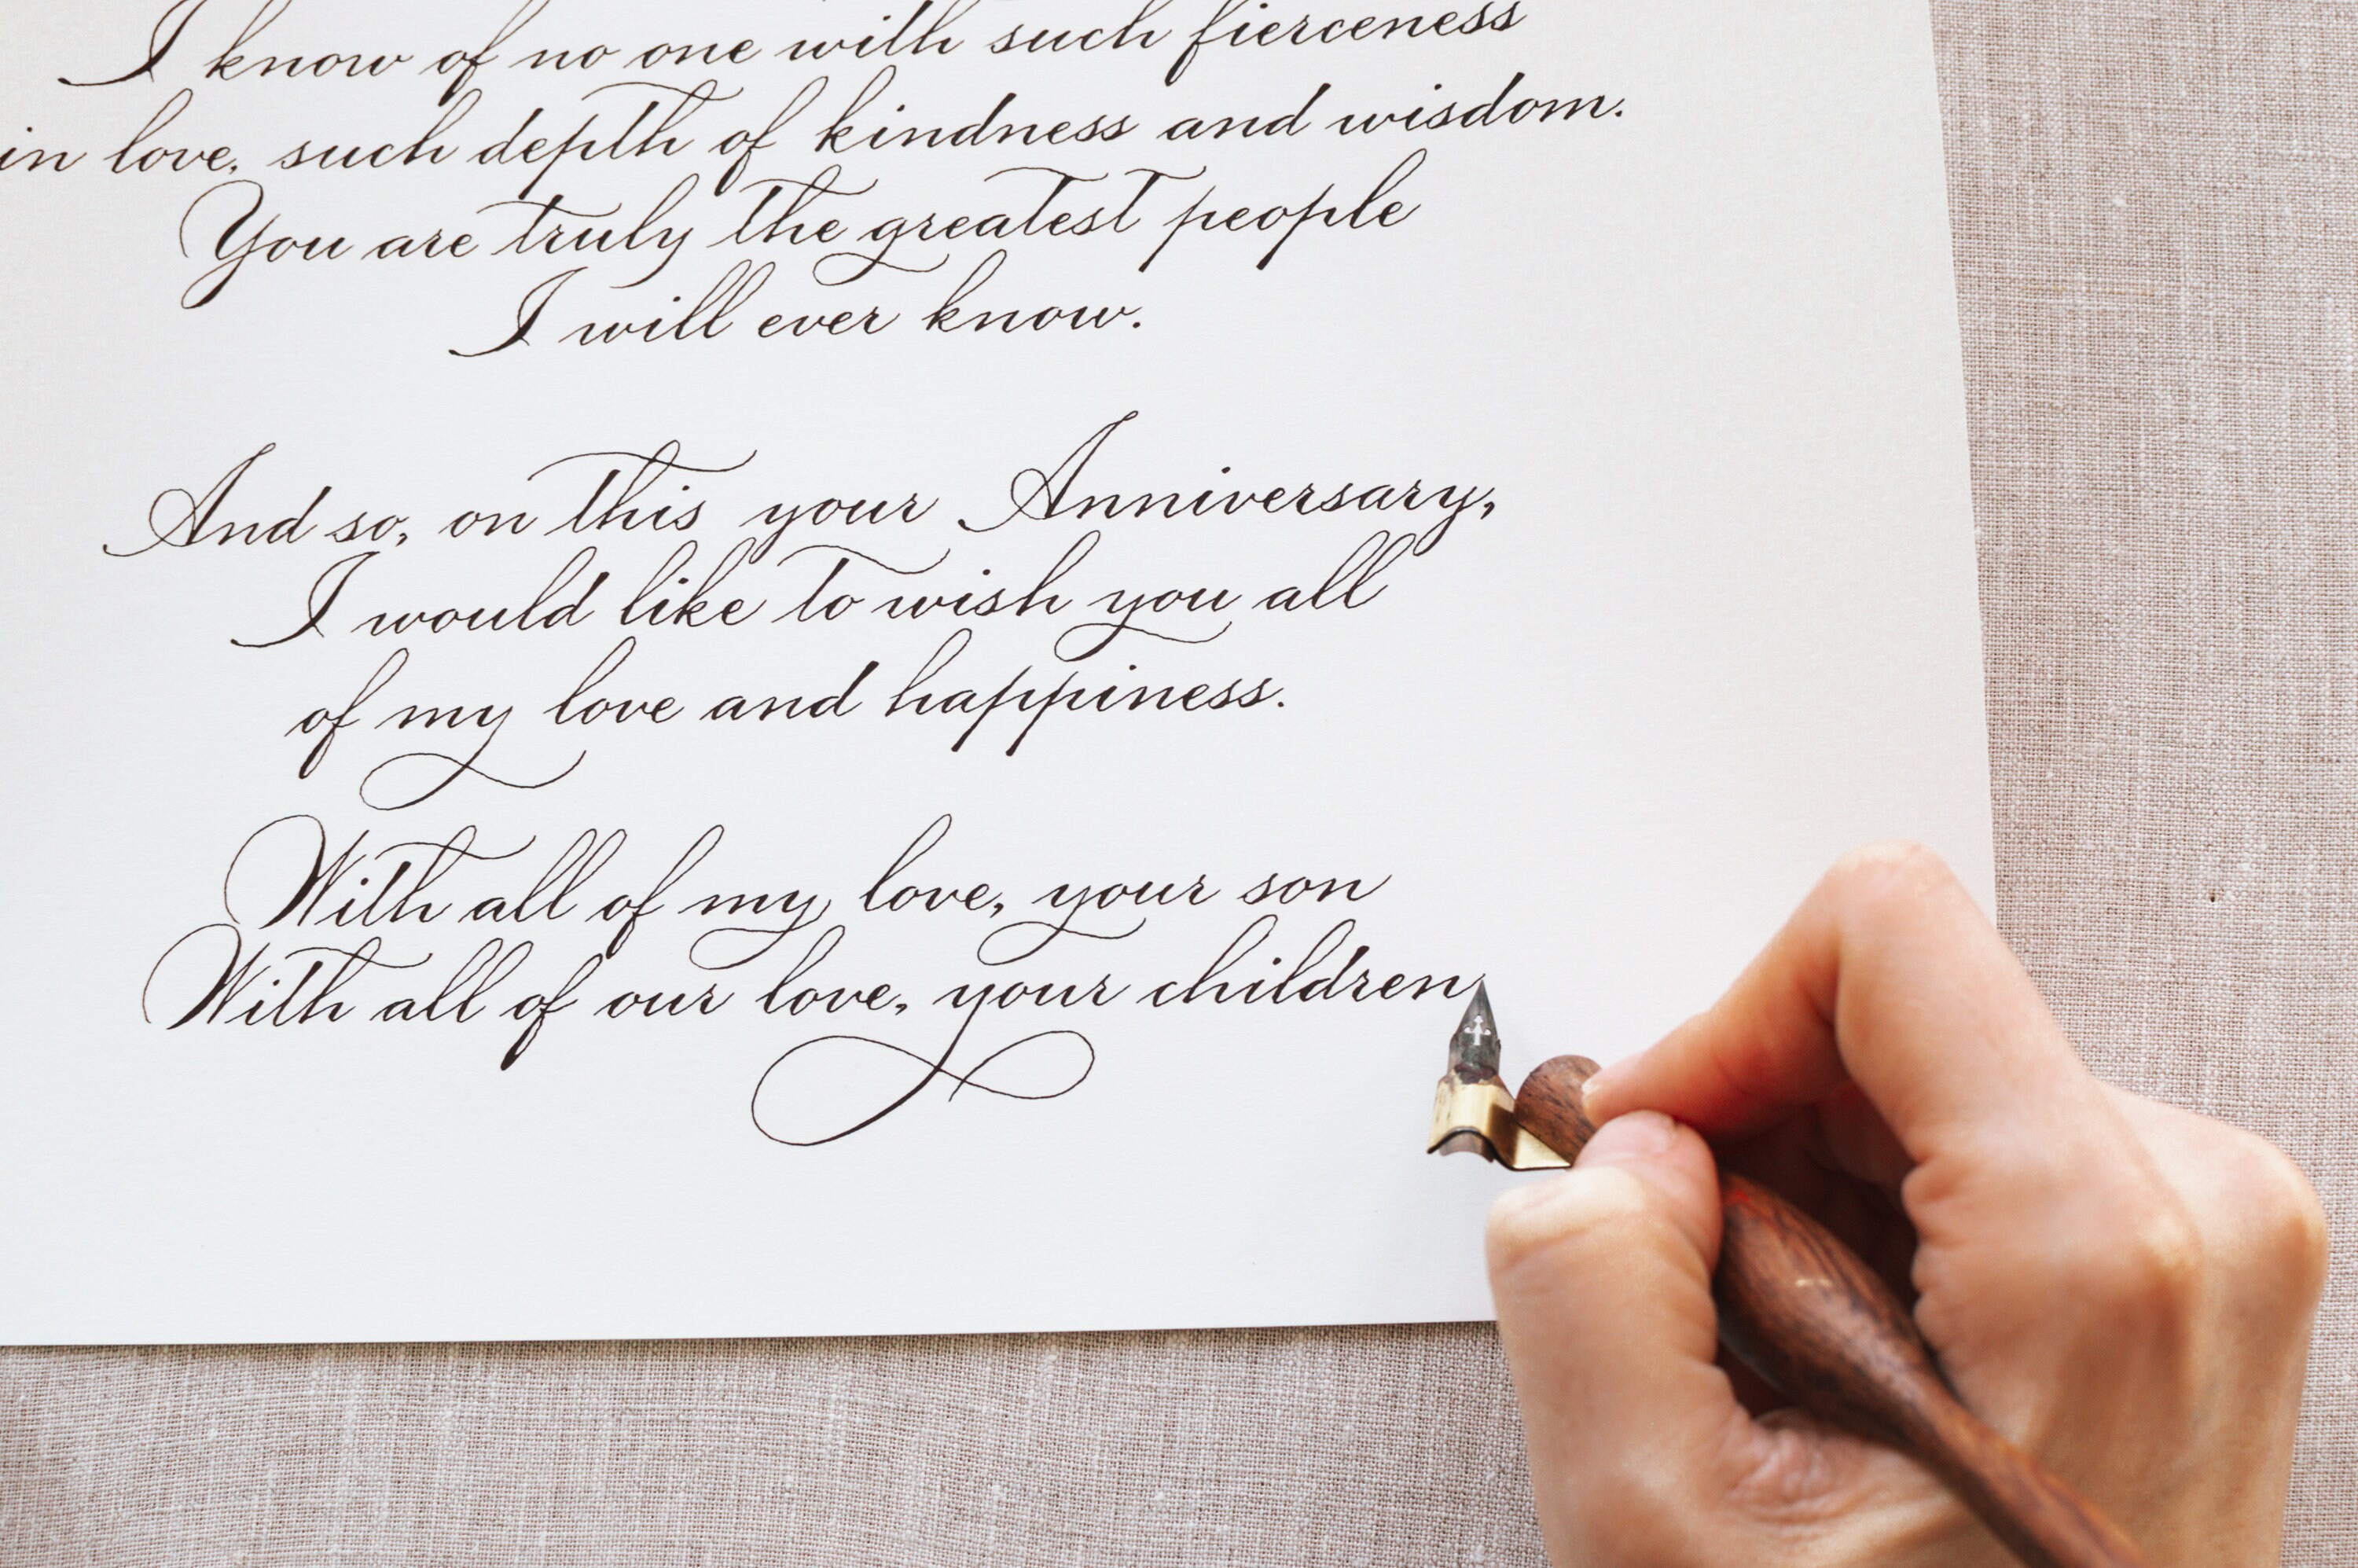 I know of no one with such fierceness
in love, such depth of kindness and wisdom.
You are truly the greatest people
I will ever know.
And so, on this your Anniversary,
I would like to wish you all
of my love and happiness.
With all of my love, your son
With all of our love, your children